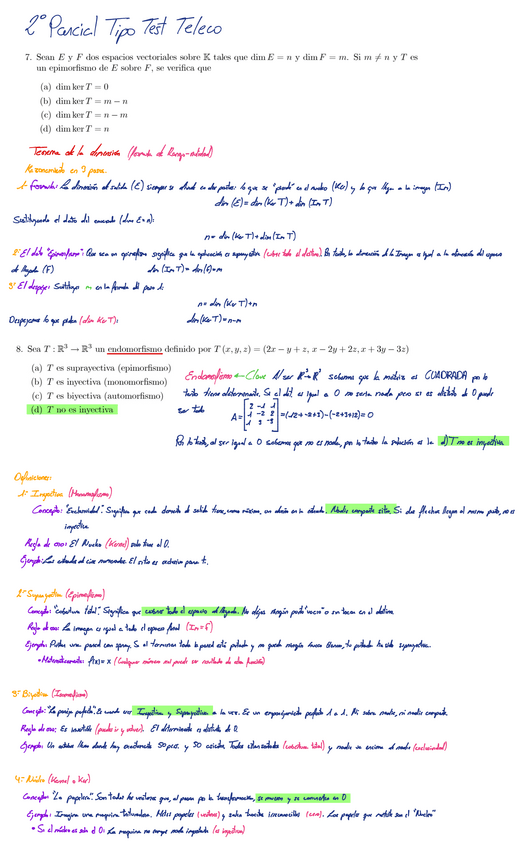 2º Parcial Tipo Test Teleco
7. Sean E y F dos espacios vectoriales sobre K tales que dim E = n y dim F = m. Si m ≠ n y T es
un epimorfismo de E sobre F, se verifica que
(a) dim ker T = 0
(b) dim ker T = m − n
(c) dim ker T = n − m
(d) dim ker T = n
Teorema de la dimensión (formula de Rango-nulidad)
Razonamiento en 3 pasos.
1- Formula: La dimensión de salida (E) siempre se divide en dos partes: lo que se "pierde" en el nucleo (Ker) y lo que llega a la imagen (Im)
dim (E) = dim (Ker T) + dim (Im T)
Sustituyendo el dato del enunciado (dim E=n):
n = dim (Ker T) + dim (Im T)
2- El dato "Epimorfismo": Que sea un epimorfismo significa que la aplicación es suprayectiva (cubre todo el destino). Por tanto, la dimensión de la Imagen es igual a la dimensión del espacio
de llegada (F) dim (Im T) = dim (F) = m
3- El despeje: Sustituyo m en la formula del paso 1:
n = dim (Ker T) + m
Despejamos lo que piden (dim Ker T): dim (Ker T) = n-m
8. Sea T : R³ → R³ un endomorfismo definido por T (x, y, z) = (2x − y + z, x − 2y + 2z, x + 3y − 3z)
(a) T es suprayectiva (epimorfismo)
(b) T es inyectiva (monomorfismo)
(c) T es biyectiva (automorfismo)
(d) T no es inyectiva
Endomorfismo ← Clave Al ser R³→R³ sabemos que la matriz es CUADRADA por lo
tanto tiene determinante. Si el det. es igual a 0 no sería nada pero si es distinto de 0 puede
ser todo
Por lo tanto, al ser igual a 0 sabemos que no es nada, por lo tanto la solución es la d) T no es inyectiva
Definiciones:
1- Inyectiva (Monomorfismo)
Concepto: "Exclusividad". Significa que cada elemento de salida tiene, como máximo, un destino en la entrada. Nadie comparte sitio. Si dos flechas llegan al mismo punto, no es
inyectiva
Regla de oro: El Nucleo (Kernel) solo tiene el 0.
Ejemplo: Las entradas del cine numeradas. El sitio es exclusivo para ti.
2- Suprayectiva (Epimorfismo)
Concepto: "cobertura total". Significa que cubres todo el espacio de llegada. No dejas ningún punto "vacío" o sin tocar en el destino.
Regla de oro: La imagen es igual a todo el espacio final (Im = F)
Ejemplo: Pintas una pared con spray. Si al terminar toda la pared está pintada y no queda ningún hueco blanco, tu pintada ha sido suprayectiva.
• Matematicamente: f(x) = x (Cualquier número real puede ser resultado de esta función)
3- Biyectiva (Isomorfismo)
Concepto: "La pareja perfecta". Es cuando eres Inyectiva y Suprayectiva a la vez. Es un emparejamiento perfecto 1 a 1. Ni sobra nadie, ni nadie comparte.
Regla de oro: Es invertible (puedes ir y volver). El determinante es distinto de 0.
Ejemplo: Un autobus lleno donde hay exactamente 50 pers. y 50 asientos. Todos están sentados (cobertura total) y nadie va encima de nadie (exclusividad)
4- Nucleo (Kernel o Ker)
Concepto: "La papelera". Son todos los vectores que, al pasar por la transformación, se mueren y se convierten en 0
Ejemplo: Imagina una maquina trituradora. Metes papeles (vectores) y salen trocitos irreconocibles (cero). Los papeles que metiste son el "Nucleo"
• Si el núcleo es solo el 0: La maquina no rompe nada importante (es inyectiva)